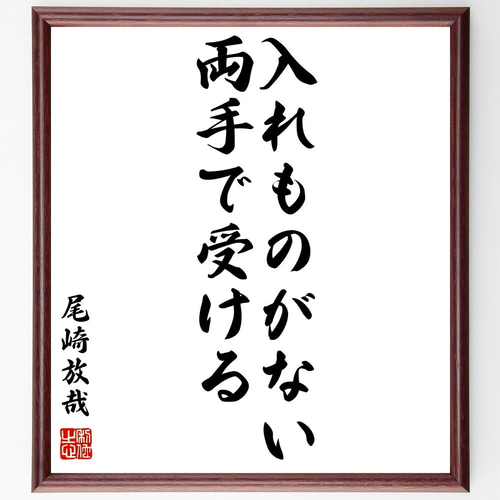 入れものがない
両手で受ける
尾崎放哉